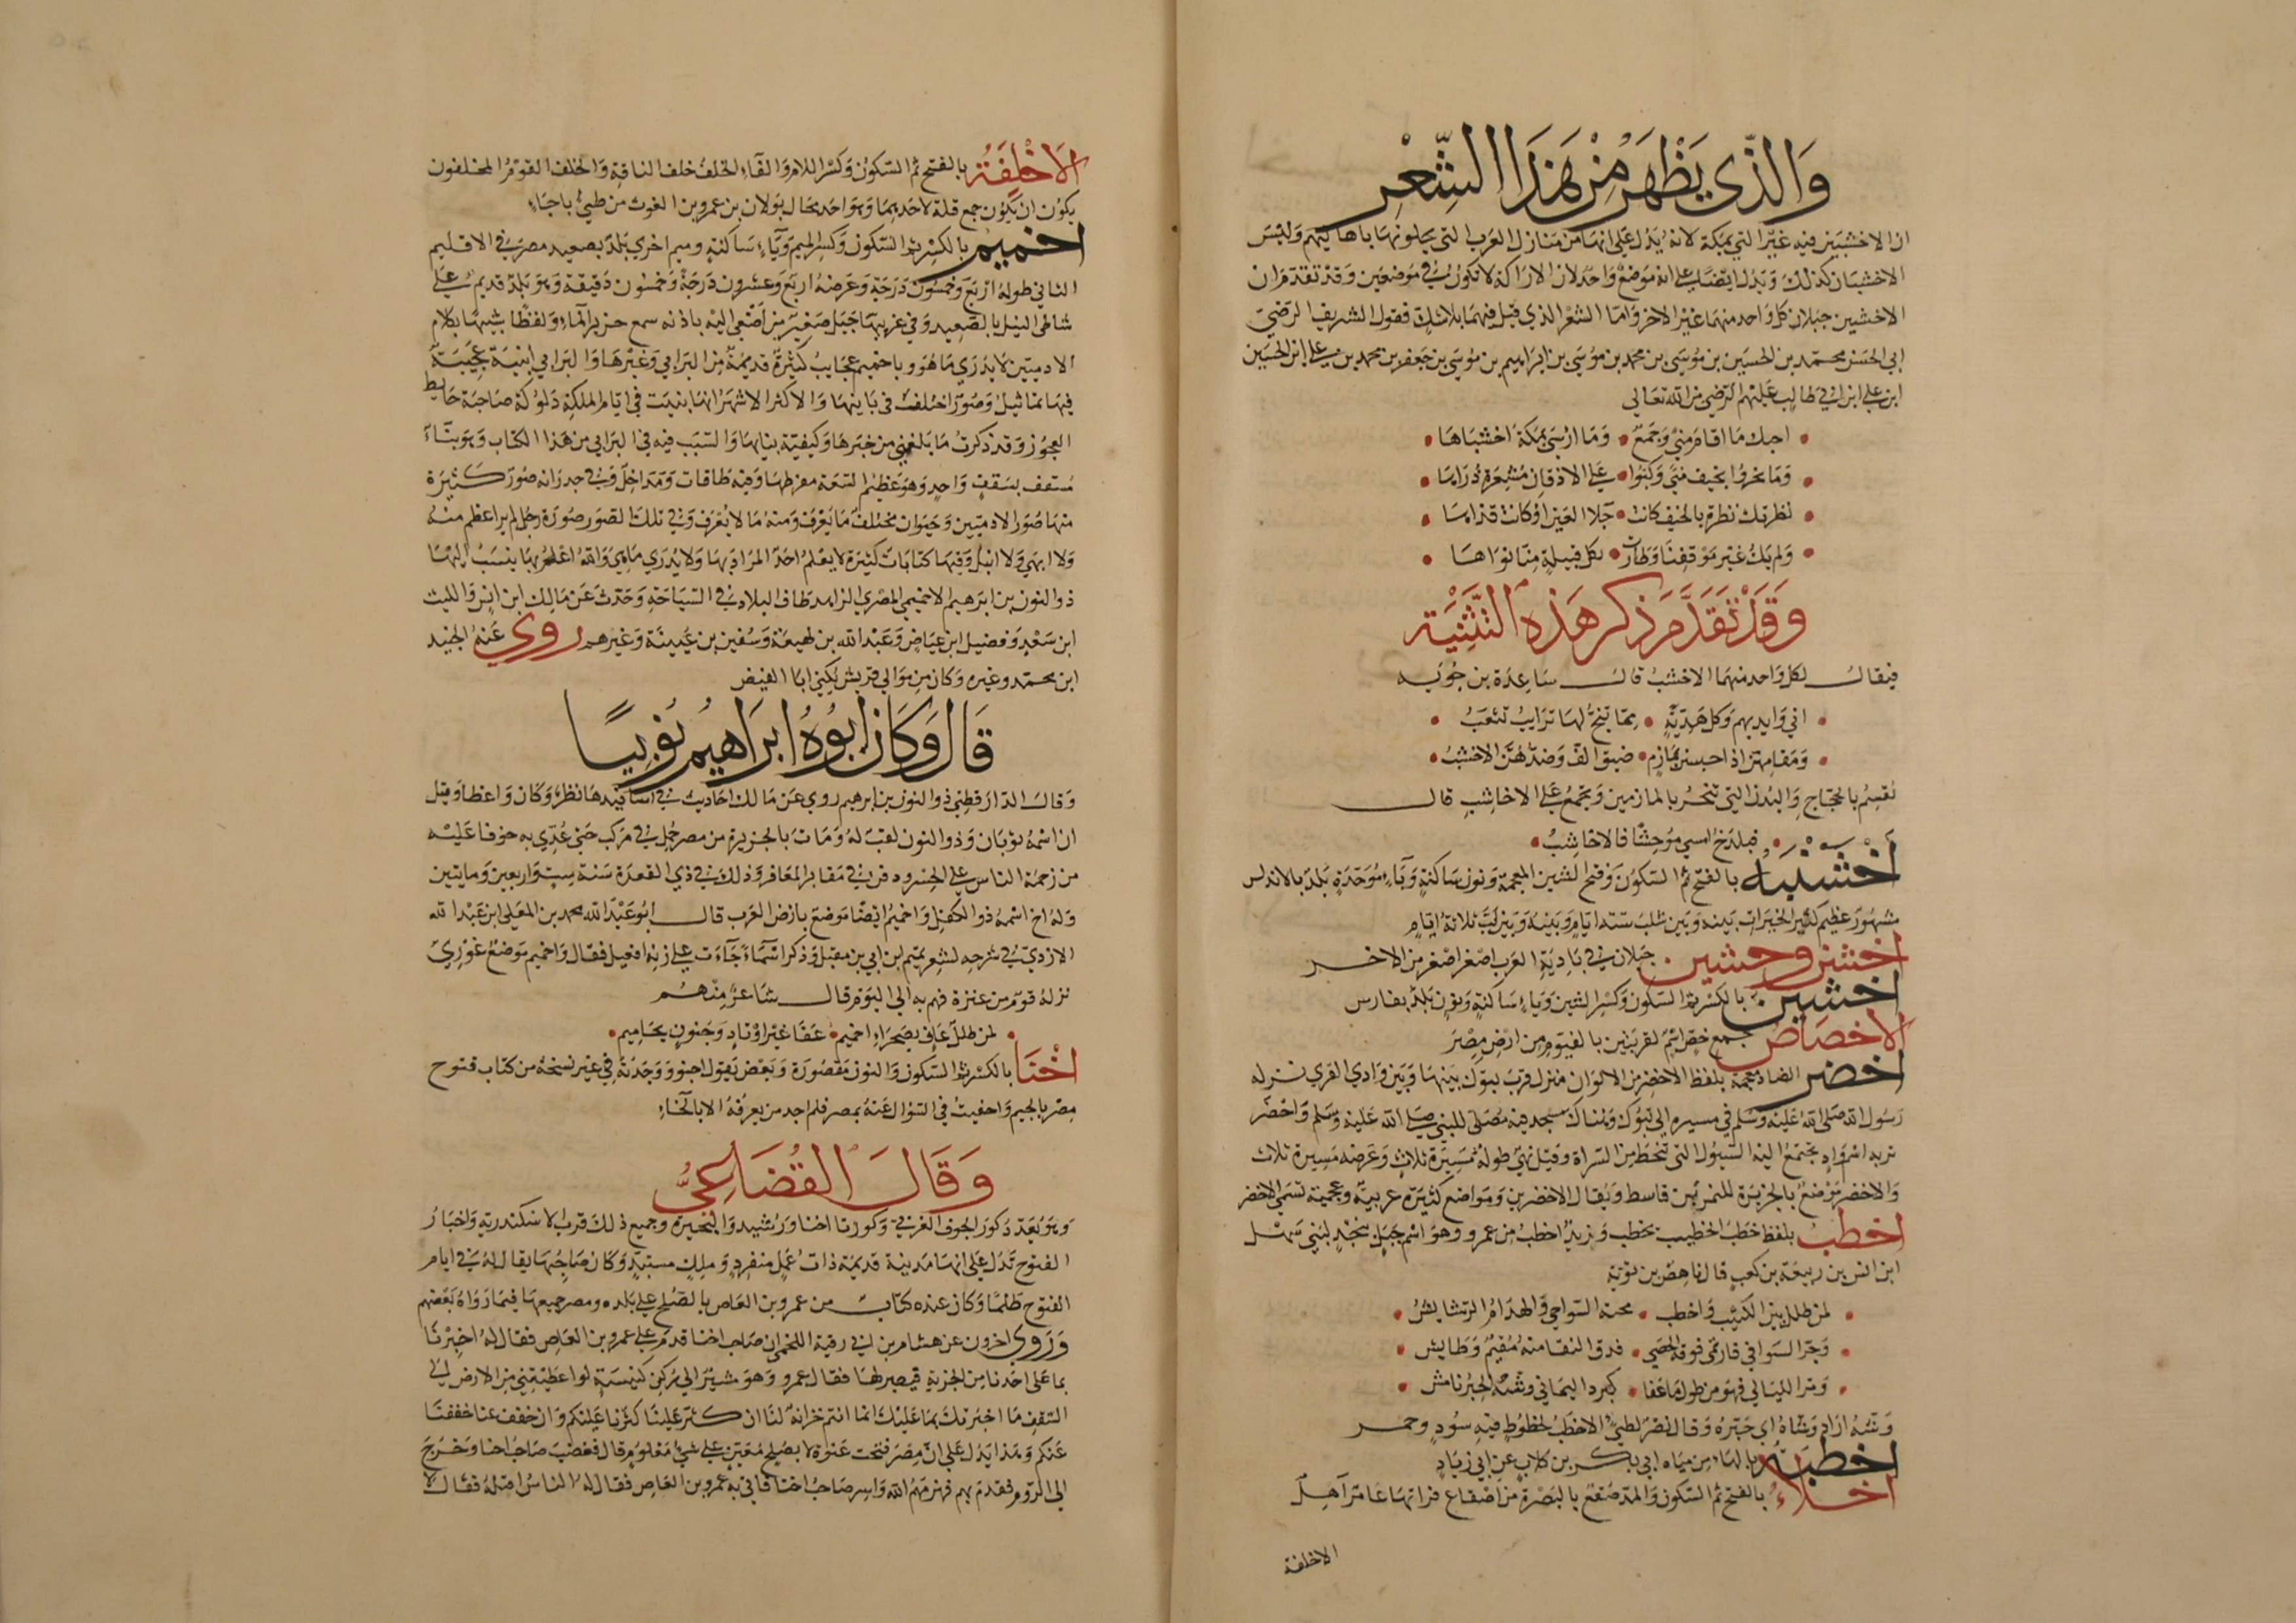 والذي يظهر من هذا الشعر
ان الاخشبين فيه غير التي بمكة لانه يدل على انها من منازل العرب التي يحلونها باهاليهم وليس
الاخشبان كذلك ويدل ايضا على انه موضع واحد لان الاراكة لا تكون في موضعين وقد تقدم ان
الاخشبين جبلان كل واحد منهما غير الاخر واما الشعر الذي قيل فيهما بلا شك فقول الشريف الرضي
ابي الحسن محمد بن الحسين بن موسى بن محمد بن موسى بن ابراهيم بن موسى بن جعفر بن محمد بن علي ابن الحسين
ابن علي ابن ابي طالب عليهم الرضي من الله تعالى
احبك ما اقام منى وجمع • وما ارسى بمكة اخشباها
وما نحروا بخيف منى وكبوا • على الاذقان مشعرة ذراها
نظرتك نظرة بالخيف كانت • جلا العين او كانت قذاها
ولم يك غير موقفنا وطارت • بكل قبيلة منا نواها
وقد تقدم ذكر هذه التثنية
فيقال لكل واحد منهما الاخشب قال ساعدة بن جوية
اني وايديهم وكل هدية • مما تثج لها ترايب تثعب
ومقامهن اذا حبسن بمازم • ضيق الف وصدهن الاخشب
نقسم بالحجاج والبدن التي تنحر بالمازمين وتجمع على الاخاشب قال
فبلدح امسى موحشا فالاخاشب
اخشنبه بالفتح ثم السكون وفتح الشين المعجمة ونون ساكنة وباء موحدة بلد بالاندلس
مشهور عظيم كثير الخيرات بينه وبين شلب ستة ايام وبينه وبين لب ثلاثة ايام
اخشن وخشين جبلان في بادية العرب اصغر اصغر من الاخر
اخشين بالكسر ثم السكون وكسر الشين وياء ساكنة ونون بلد بفارس
الاخصاص جمع خص اسم لقريتين بالفيوم من ارض مصر
اخضر الضاد معجمة بلفظ الاخضر من الالوان منزل قرب تبوك بينها وبين وادي القرى نزله
رسول الله صلى الله عليه وسلم في مسيره الى تبوك وهناك مسجد فيه مصلى للنبي صلى الله عليه وسلم واخضر
تربه اسم واد تجتمع اليه السيول التي تنحط من السراة وقيل نهي طوله مسيرة ثلاث وعرضه مسيرة ثلاث
والاخضر موضع بالجزيرة للنمر بن قاسط ويقال الاخضرين ومواضع كثيرة عربية وعجمية تسمى الاخضر
اخطب بلفظ خطب الخطيب يخطب وزيد اخطب من عمرو وهو اسم جبل بنجد لبني سهل
ابن انس بن ربيعة بن كعب قال ناهض بن ثومة
لمن طلل بين الكثيب واخطب • محته السواحي والهدام الرشايش
وجر السوافي فارتمى فوقه الحصى • فدق النقا منه مقيم وطايش
ومر الليالي فهو من طول ما عفا • كبرد اليماني وشه الحبر نامش
وشه اراد وشاه اي حبره وقال نصر لطيئ الاخطب لخطوط فيه سود وحمر
اخطبة بالهاء من مياه ابي بكر بن كلاب عن ابي زياد
اخلاء بالفتح ثم السكون والمد صقع بالبصرة من اصقاع فراتها عامر آهل
الاخلفة
الاخلفة بالفتح ثم السكون وكسر اللام والفاء الخلف خلف الناقة والخلف القوم المخلفون
يكون ان يكون جمع قلة لاحدهما وهو احد محال بولان بن عمرو بن الغوث من طيئ باجاء
اخميم بالكسر ثم السكون وكسر الميم وياء ساكنة وميم اخرى بلد بصعيد مصر في الاقليم
الثاني طوله اربع وخمسون درجة وعرضه اربع وعشرون درجة وخمسون دقيقة وهو بلد قديم على
شاطى النيل بالصعيد وفي غربيها جبل صغير من اصغى اليه باذنه سمع خرير الماء ولغطا شبيها بكلام
الادميين لا يدري ما هو وباخميم عجايب كثيرة قديمة من البرابي وغيرها والبرابي ابنية عجيبة
فيها تماثيل وصور اختلف في بانيها والاكثر الاشهر انها بنيت في ايام الملكة دلوكة صاحبة حايط
العجوز وقد ذكرت ما بلغني من خبرها وكيفية بنايها والسبب فيه في البرابي من هذا الكتاب وهو بناء
مسقف بسقف واحد وهو عظيم السعة مفرطها وفيه طاقات ومداخل وفي جدرانه صور كثيرة
منها صور الادميين وحيوان مختلف ما يعرف ومنه ما لا يعرف وفي تلك الصور صورة رجل لم ير اعظم منه
ولا ابهى ولا انبل وفيها كتابات كثيرة لا يعلم احد المراد بها ولا يدري ما هي والله اعلم بها ينسب اليها
ذو النون بن ابرهيم الاخميمي المصري الزاهد طاف البلاد في السياحة وحدث عن مالك ابن انس والليث
ابن سعد وفضيل ابن عياض وعبد الله بن لهيعة وسفين بن عيينة وغيرهم روى عنه الجنيد
ابن محمد وغيره وكان من موالي قريش يكنى ابا الفيض
قال وكان ابوه ابراهيم نوبيا
وقال الدارقطني ذو النون بن ابرهيم روى عن مالك احاديث في اسانيدها نظر وكان واعظا وقيل
ان اسمه ثوبان وذو النون لقب له ومات بالجيزة من مصر حمل في مركب حتى عدي به خوفا عليه
من زحمة الناس على الجسر ودفن في مقابر المعافر وذلك في ذي القعدة سنة ست واربعين ومايتين
وله اخ اسمه ذو الكفل واخميم ايضا موضع بارض العرب قال ابو عبد الله محمد بن المعلى ابن عبد الله
الازدي في شرحه لشعر تميم بن ابي بن مقبل وذكر اسماء جاءت على زنة افعيل فقال واخميم موضع غوري
نزله قوم من عنزة فهم به الى اليوم قال شاعر منهم
لمن طلل عاف بصحراء اخميم • عفا غير اوتاد وجنون يحاميم
اخنا بالكسر ثم السكون والنون مقصورة وبعض يقول اخنو ووجدته في غير نسخة من كتاب فتوح
مصر بالجيم واحفيت في السؤال عنه بمصر فلم اجد من يعرفه الا بالخاء
وقال القضاعي
وهو يعدد كور الحوف الغربي وكورتا اخنا ورشيد والبحيرة وجميع ذلك قرب الاسكندرية واخبار
الفتوح تدل على انها مدينة قديمة ذات عمل منفرد وملك مستبد وكان صاحبها يقال له في ايام
الفتوح طلما وكان عنده كتاب من عمرو بن العاص بالصلح على بلده ومصر جميعها فيما رواه بعضهم
وروى اخرون عن هشام بن ابي رقية اللخمي ان صاحب اخنا قدم على عمرو بن العاص فقال له اخبرنا
بما على احدنا من الجزية فيصبر لها فقال عمرو وهو مشير الى ركن كنيسة لو اعطيتني من الارض الى
السقف ما اخبرتك بما عليك انما انتم خزانة لنا ان كثر علينا كثرنا عليكم وان خفف عنا خففنا
عنكم وهذا يدل على ان مصر فتحت عنوة لا بصلح معين على شيء معلوم قال فغضب صاحب اخنا وخرج
الى الروم فقدم بهم فهزمهم الله واسر صاحب اخنا فاتى به عمرو بن العاص فقال له الناس اقتله فقال لا